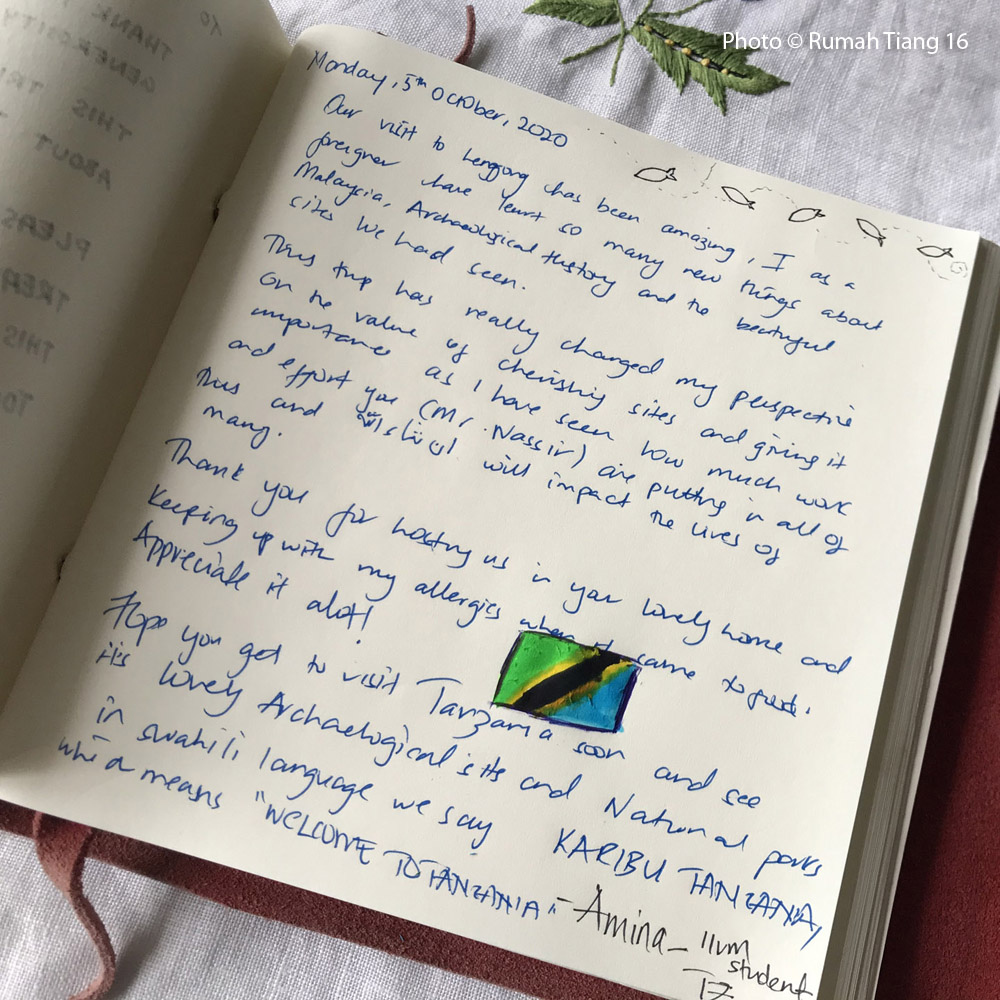 Photo © Rumah Tiang 16
Monday, 5th October, 2020
Our visit to Lenggong has been amazing, I as a
foreigner have learnt so many new things about
Malaysia, Archaeological History and the beautiful
sites we had seen.
This trip has really changed my perspective
on the value of cherishing sites and giving it
importance as I have seen how much work
and effort you (Mr. Nassir) are putting in all of
this and will impact the lives of
many.
Thank you for hosting us in your lovely home and
keeping up with my allergies when it came to food.
Appreciate it alot!
Hope you get to visit Tanzania soon and see
it's lovely Archaelogical sits and National parks
in swahili language we say KARIBU TANZANIA,
which means "WELCOME
TO TANZANIA"
-Amina- IIUM
student
TZ